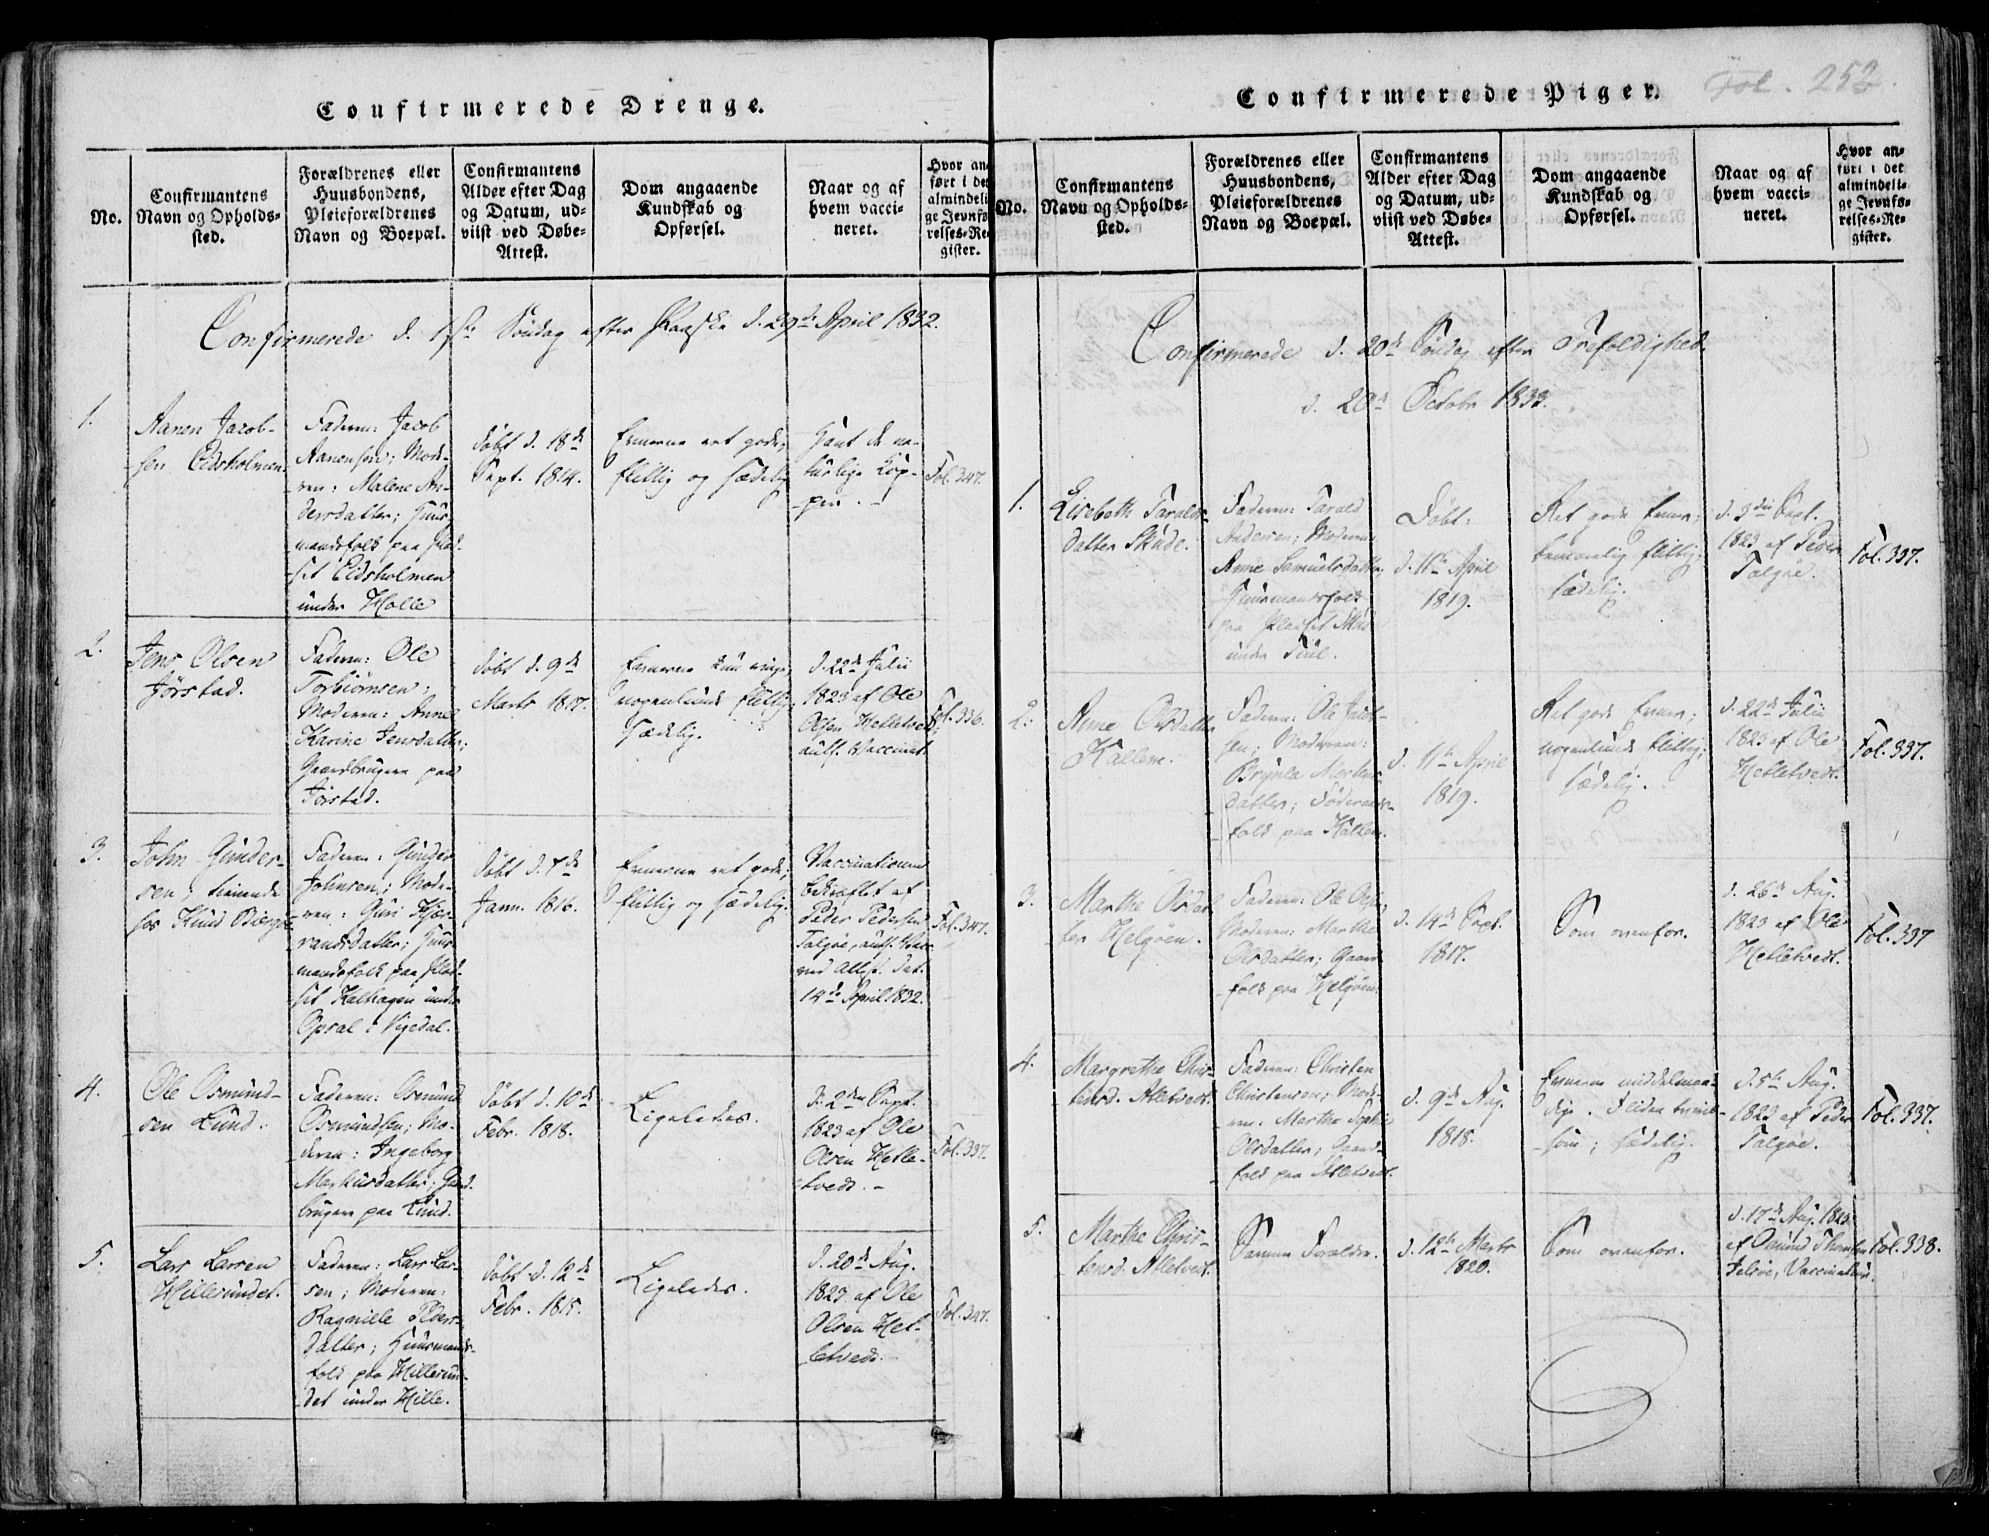 Confirmerede Drenge.
No.
Confirmantens
Navn og Opholds-
sted.
Forældrenes eller
Huusbondens,
Pleieforældrenes
Navn og Boepæl.
Confirmantens
Alder efter Dag
og Datum, ud-
viist ved Døbe-
Attest.
Dom angaaende
Kundskab og
Opførsel.
Naar og af
hvem vacci-
neret.
Hvor an
ført i det
almindeli
ge Jevnfø
relses-Re
gister.
Confirmerede d. 1ste Søndag efter Paaske d. 29de April 1832.
1.
Aanen Jacob-
sen Eidsholmen.
Faderen: Jacob
Aanensen; Mode-
ren: Malene An-
dersdatter; Huus-
mandsfolk paa Plad-
set Eidsholmen
under Holle
døbt d. 18de
Sept. 1814.
Evnerne ret gode;
flittig og sædelig
Havt de na-
turlige Kop-
per. -
Fol. 347.
2.
Jens Olsen
Jørstad.
Faderen: Ole
Torbiörnsen;
Moderen: Anne
Karine Jensdatter;
Gaardbrugere paa
Jørstad.
døbt d. 9de
Marts 1817.
Evnerne kun ringe;
nogenlunde flittig;
sædelig.
d. 22de Julii
1823 af Ole
Olsen Hetletvedt,
Vaccinat.
Fol. 336.
3.
John Gunder-
sen, tienende
hos Knud
Faderen: Gunder
Johnsen; Mode-
ren: Guri
randsdatter; Huus-
mandsfolk paa Plad-
set Kalhagen under
Opsal i Vigedal.
døbt d. 7de
Janu. 1816.
Evnerne ret gode;
flittig og sædelig.
Vaccinationen
bekræftet af
Peder Pedersen
Talgøe,
ved Attest dat.
14de April 1832.
Fol. 347.
4.
Ole Osmund-
sen Lund.
Faderen: Osmund
Osmundsen; Mo-
deren: Ingeborg
Markusdatter; Gaard-
brugere paa Lund.
døbt d. 10de
Febr. 1818.
Ligeledes.
d. 2den Sept.
1823 af Ole
Olsen Hetle-
tvedt. -
Fol. 337.
5.
Lars Larsen
Hillesundet.
Faderen: Lars Lar-
sen; Moderen:
Ragnille Peders-
datter; Huusmands-
folk paa Hillesun-
det under Hille.
døbt d. 12de
Febr. 1815.
Ligeledes.
d. 20de Aug.
1823 af Ole
Olsen Het-
letvedt.
Fol. 347.
Confirmerede Piger.
Fol. 252.
No.
Confirmantens
Navn og Opholds-
sted.
Forældrenes eller
Huusbondens,
Pleieforældrenes
Navn og Boepæl.
Confirmantens
Alder efter Dag
og Datum, ud-
viist ved Døbe-
Attest.
Dom angaaende
Kundskab og
Opførsel.
Naar og af
hvem vacci-
neret.
Hvor an-
ført i det
almindeli-
ge Jevnfø-
relses-Re-
gister.
Confirmerede d. 20de Søndag efter Trefoldighed.
d. 20de Octobr 1833.
1.
Lisebeth Taralds-
datter Skude.
Faderen: Tarald
Andersen; Moderen:
Anne Samuelsdatter;
Huusmandsfolk
paa Pladset Skude
under
Døbt:
d. 11te April
1819.
Ret gode Evner;
temmelig flittig;
sædelig.
d. 9de Sept.
1823 af Peder
Talgøe.
Fol. 337.
2.
Anne Olsdatter
Kallem.
Faderen: Ole Jacob-
sen; Moderen:
Brynla Mortens-
datter; Føderaads-
folk paa Kallem.
d. 11te April
1819.
Ret gode Evner;
nogenlunde flittig;
sædelig.
d. 22de Julii
1823 af Ole
Hetletvedt.
Fol. 337.
3.
Marthe Olsdat-
ter Helgøen.
Faderen: Ole Olsen;
Moderen: Marthe
Olsdatter; Gaard-
folk paa Helgøen.
d. 14de Sept.
1817.
Som ovenfor.
d. 26de Aug.
1823 af Ole
Hetletvedt.
Fol. 337
4.
Margrethe Chris-
tensd. Atletvedt.
Faderen: Christen
Christensen; Mode-
ren: Marthe Sophie
Olsdatter; Gaard-
folk paa Atletvedt.
d. 9de Aug.
1818.
Evnerne middelmaa-
dige. Fliden tvivl-
som; sædelig.
d. 5te Aug.
1823 af Peder
Talgøe.
Fol. 337.
5.
Marthe Chris-
tensd. Atletvedt.
Samme Forældre.
d. 12te Marts
1820.
Som ovenfor.
d. 17de Aug. 1823
af Omund
Jelsøe, Vaccinateur.
Fol. 338.